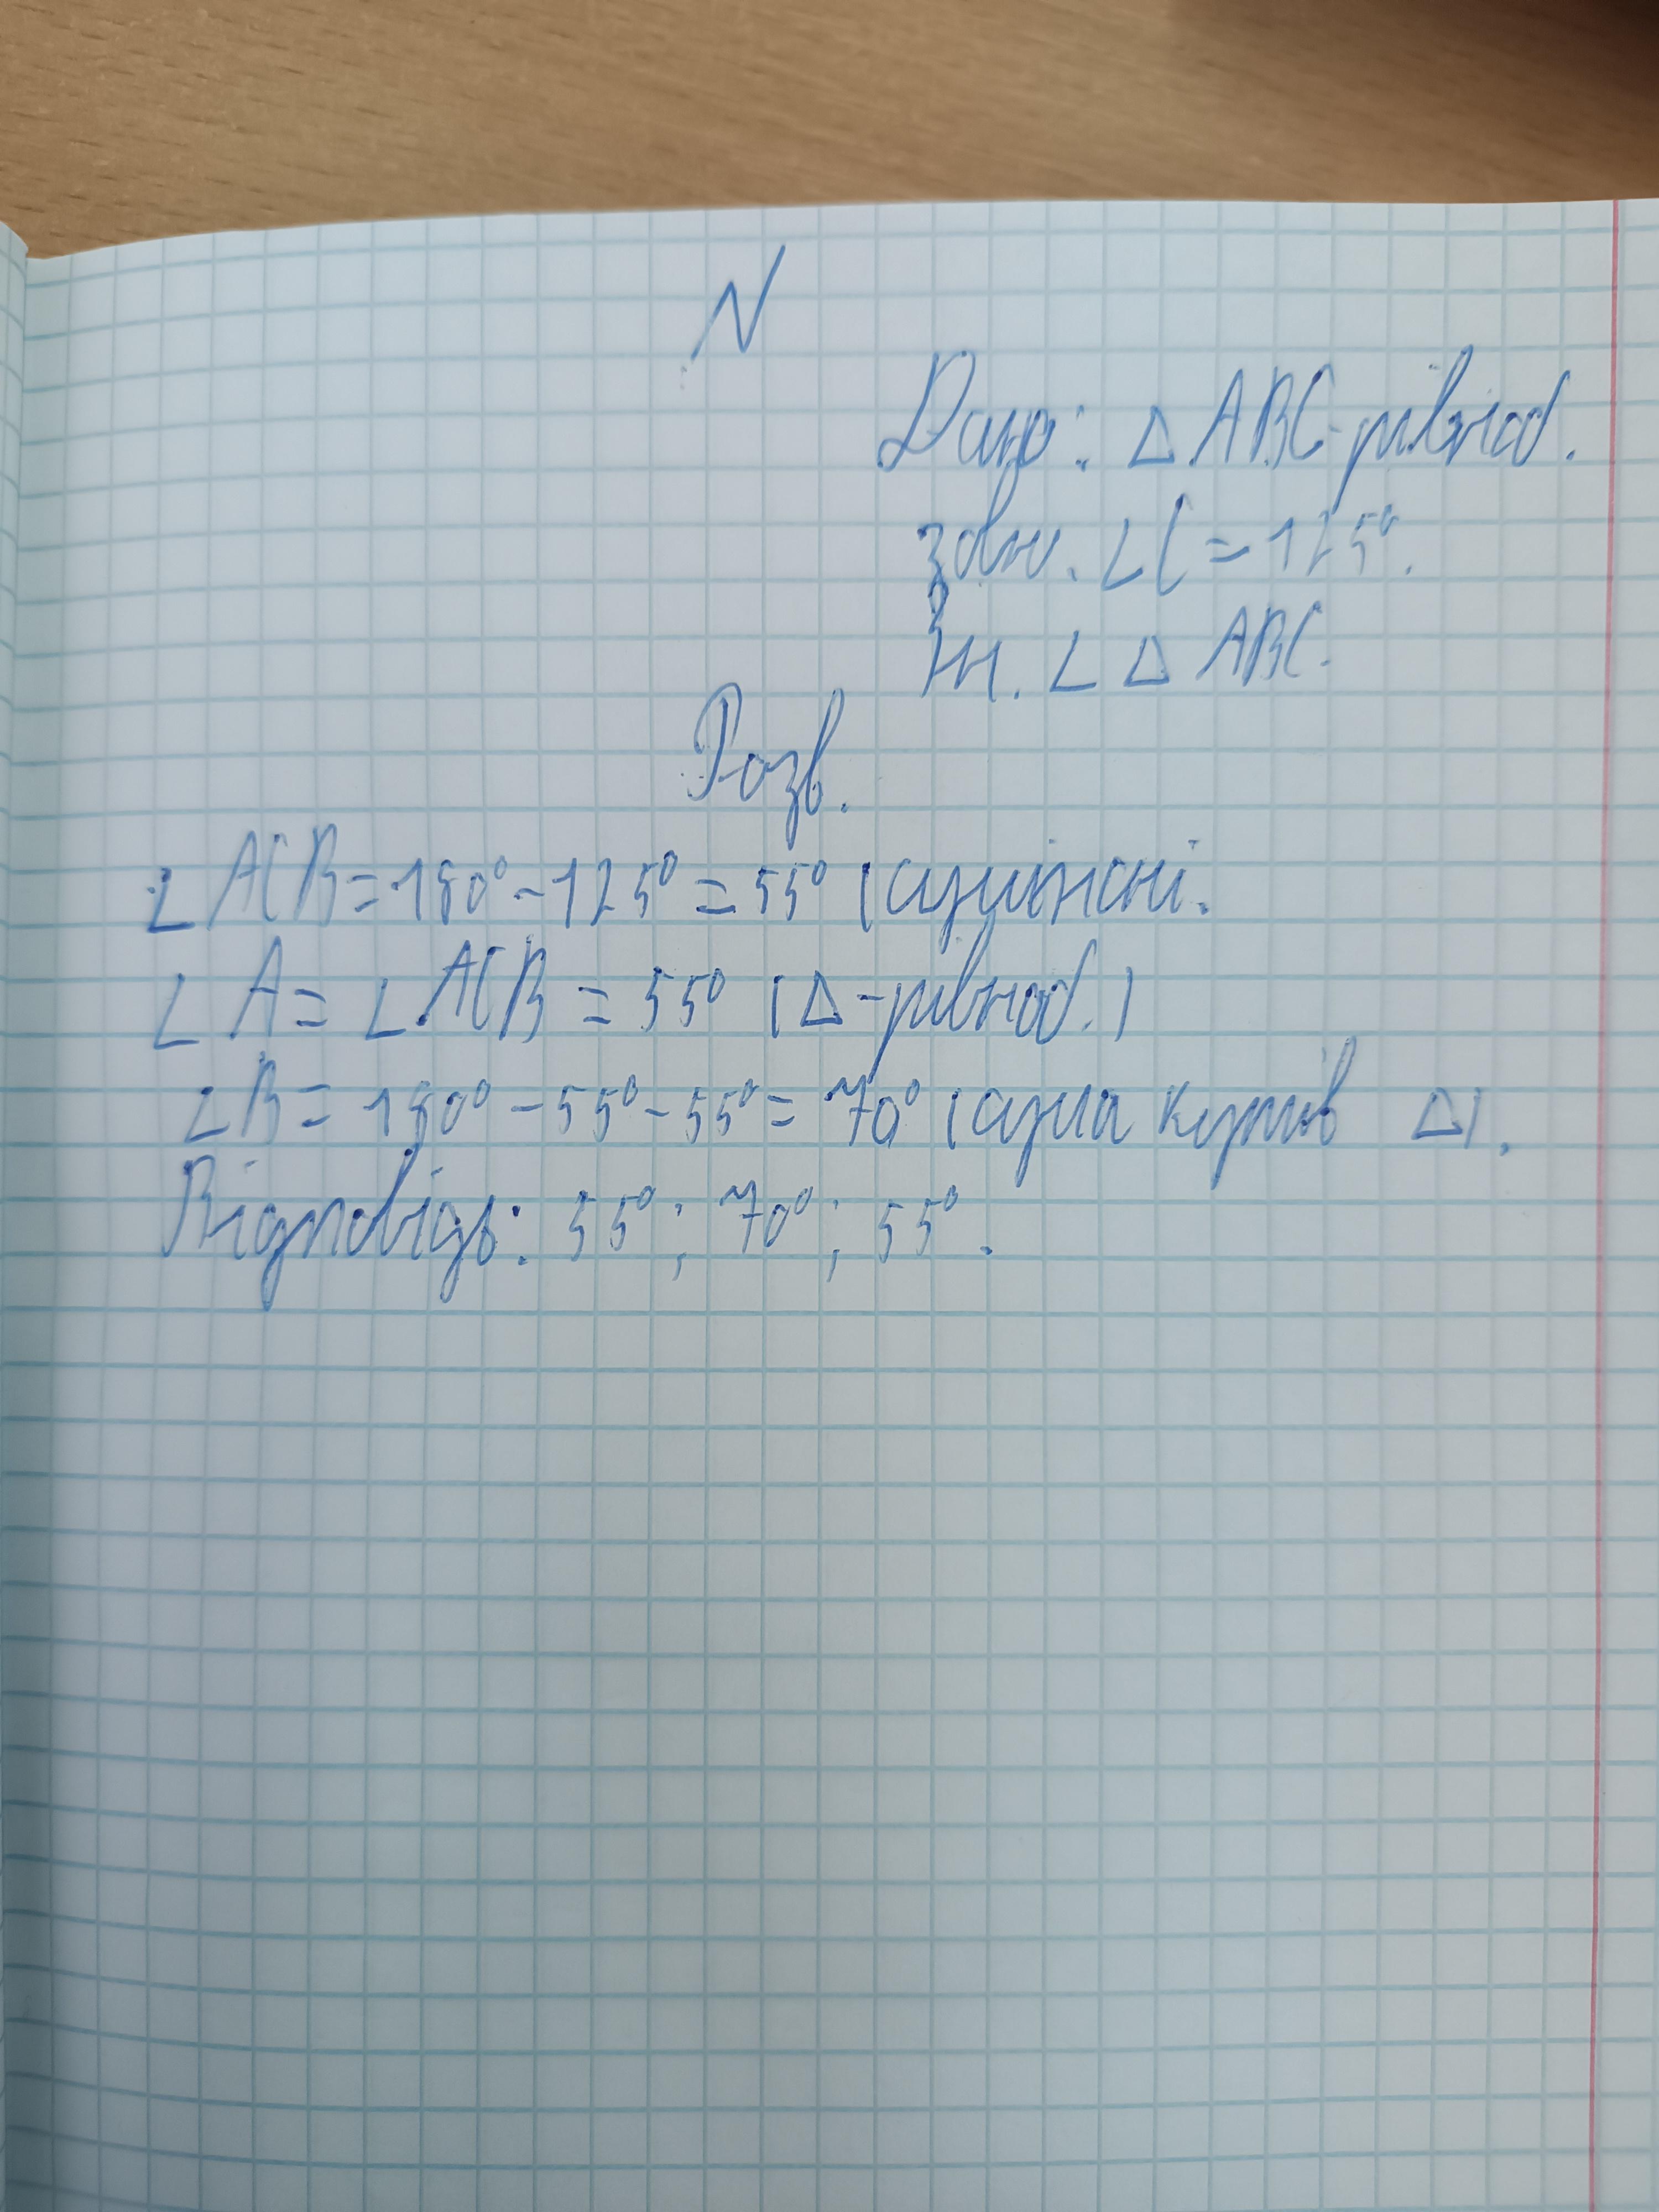 N
Дано: △ ABC-рівнод.
зовн. ∠C = 125°.
Зн. ∠ △ ABC.
Розв.
∠ACB = 180° - 125° = 55° (суміжні.
∠A = ∠ACB = 55° (△-рівнод.)
∠B = 180° - 55° - 55° = 70° (сума кутів △).
Відповідь: 55°; 70°; 55°.